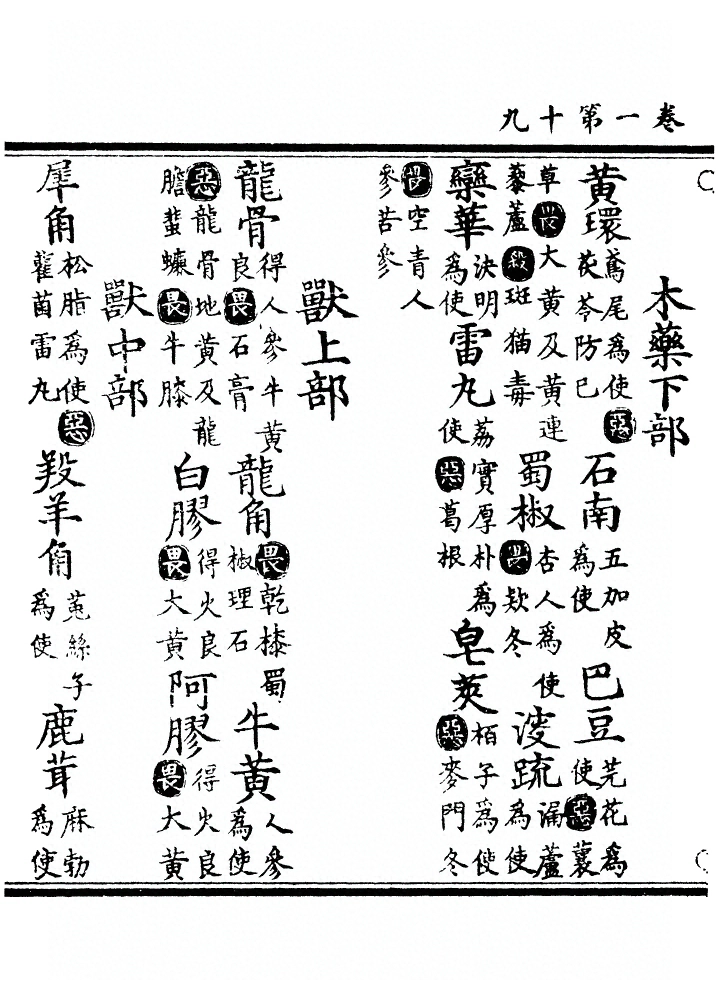 卷一第十九
木藥下部
黃環鳶尾爲使惡茯苓防已石南五加皮爲使巴豆芫花爲使惡蘘
草畏大黃及黃連藜蘆殺斑猫毒蜀椒杏人爲使畏欵冬溲疏漏蘆爲使
欒華決明爲使雷丸荔實厚朴爲使惡葛根皂莢栢子爲使惡麥門冬
畏空青人參苦參
獸上部
龍骨得人參牛黃良畏石膏龍角畏乾㯃蜀椒理石牛黃人參爲使
惡龍骨地黃及龍膽蜚蠊畏牛膝白膠得火良畏大黃阿膠得火良畏大黃
獸中部
犀角松脂爲使惡雚菌雷丸羖羊角菟絲子爲使鹿茸麻勃爲使